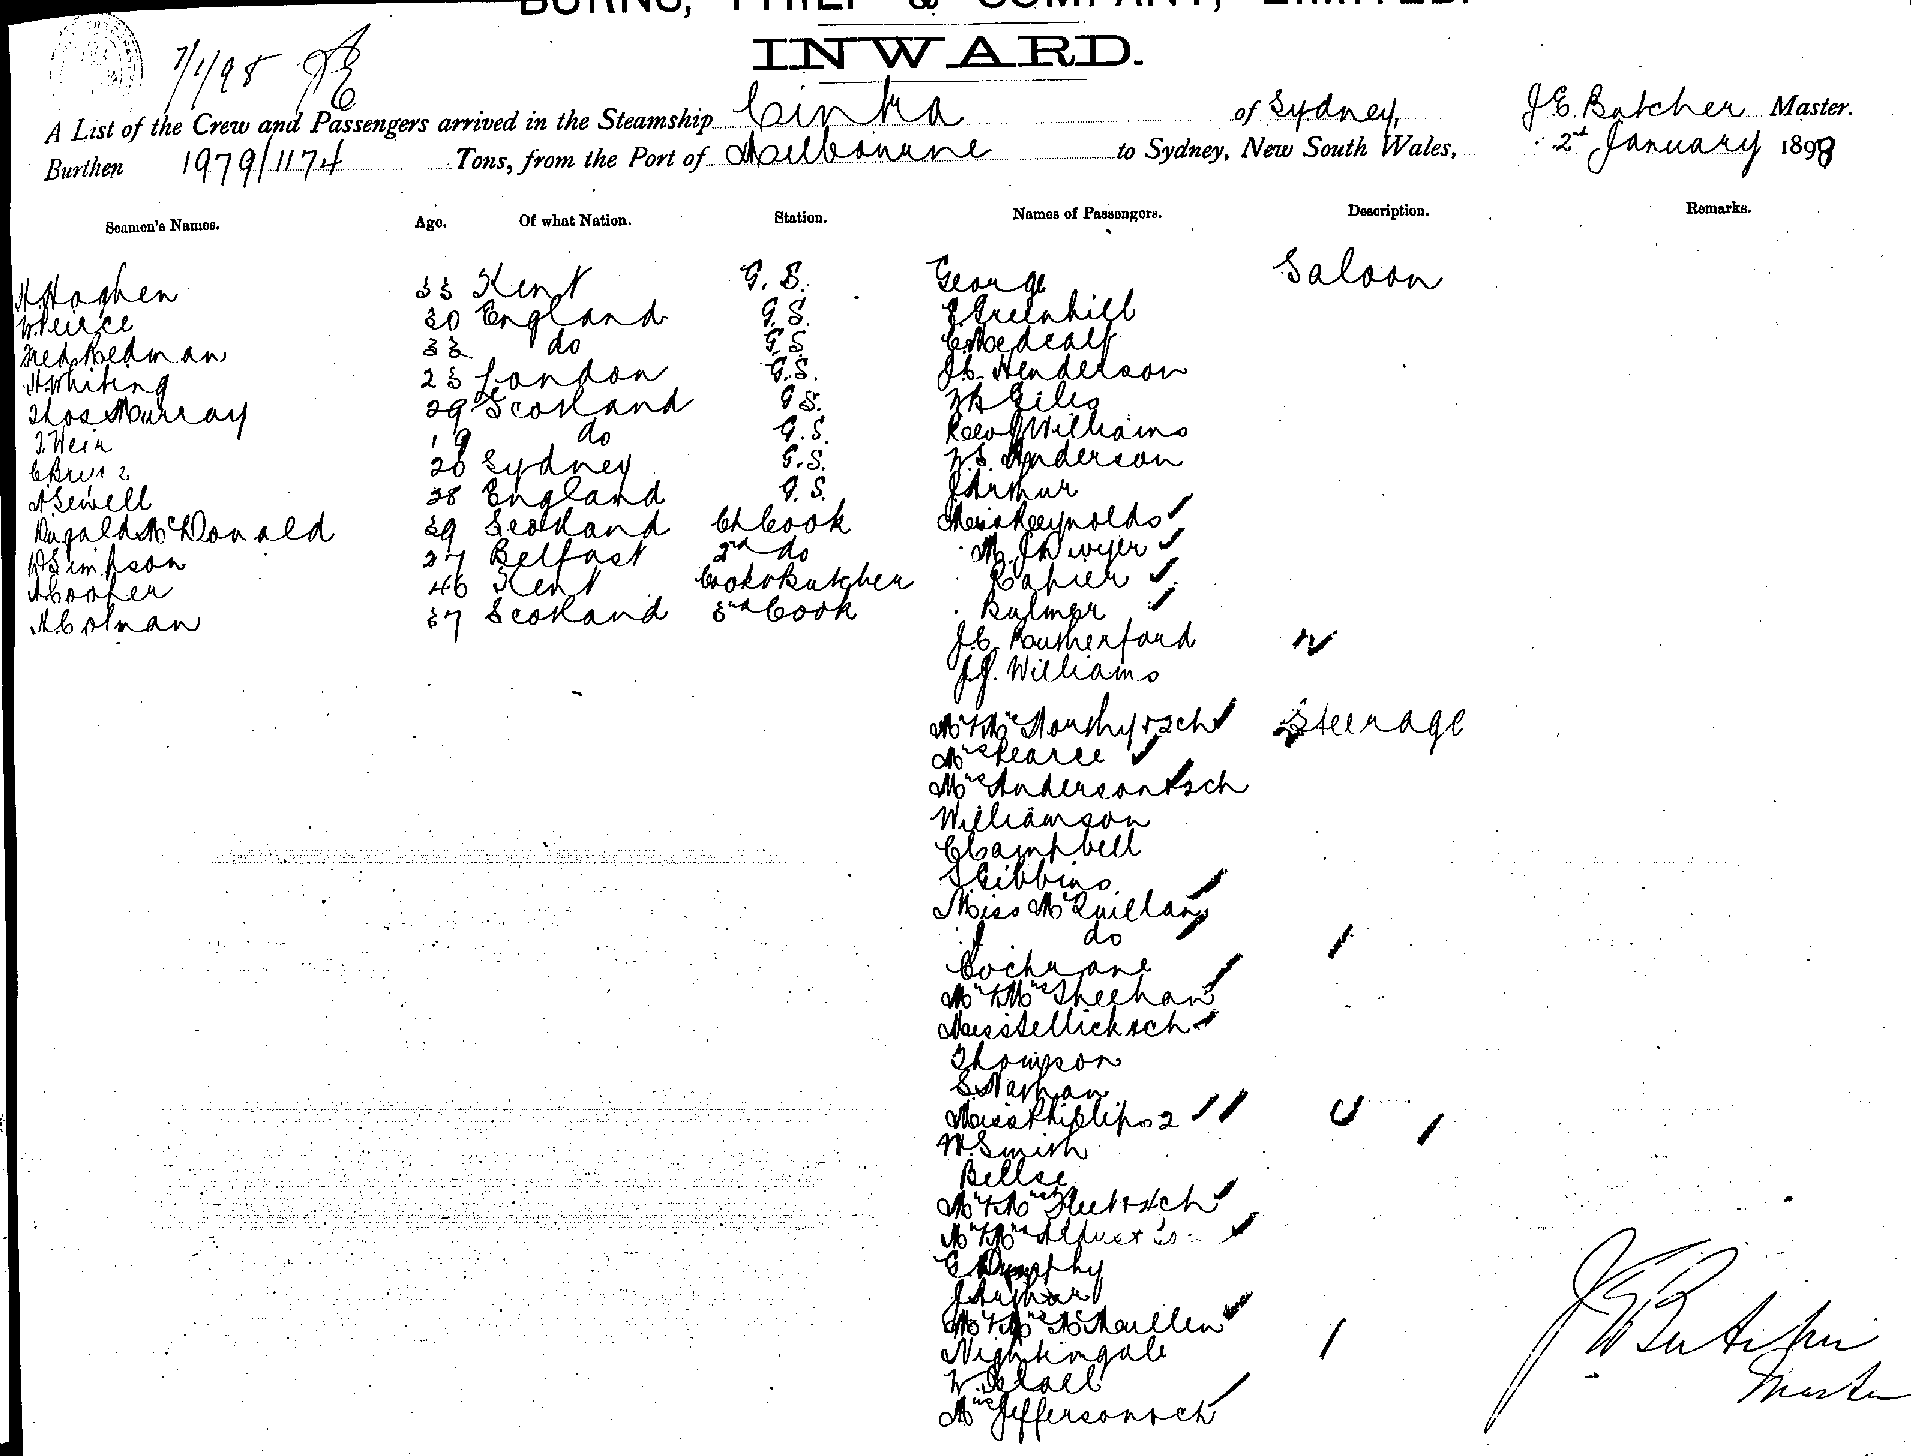 BURNS, PHILP & COMPANY, LIMITED.
INWARD.
7/1/98
A List of the Crew and Passengers arrived in the Steamship Cintra of Sydney, J E. Butcher Master.
Burthen 1979/1174 Tons, from the Port of Melbourne to Sydney, New South Wales, 2nd January 1898
Seamen's Names. Age. Of what Nation. Station. Names of Passengers. Description. Remarks.
33 Kent G. S. George Saloon
W Peirce 30 England G. S. Greenhill
Fred Redman 33 do G. S. Medcalf
H Whiting 23 London G. S. J C Henderson
Thos Murray 29 Scotland G S. Giles
T. Weir 19 do G. S. Williams
20 Sydney G. S. Anderson
A Sewell 28 England G. S. J Arthur
Dugald McDonald 39 Scotland Ch Cook Miss Reynolds
Simpson 27 Belfast 2nd do Mr J Dwyer
A Cooper 46 Kent Cook & Butcher Rapier
A Colman 37 Scotland 3rd Cook Bulmer
J. C. Rutherford
J J. Williams
Mr & Mrs & 2 ch Steerage
Mrs Pearce
Mrs Anderson & 2 ch
Williamson
C Campbell
S Gibbins
Miss McQuillan
do
Cochrane
Mr & Mrs Sheehan
Miss & ch
Thompson
S Nathan
Miss Phillips 2
W. Smith
Mr & Mrs & ch
Mr & Mrs
C Murphy
J Arthur
Mr & Mrs McMullen
Nightingale
W.
Mrs Jefferson & ch
J E Butcher
Master